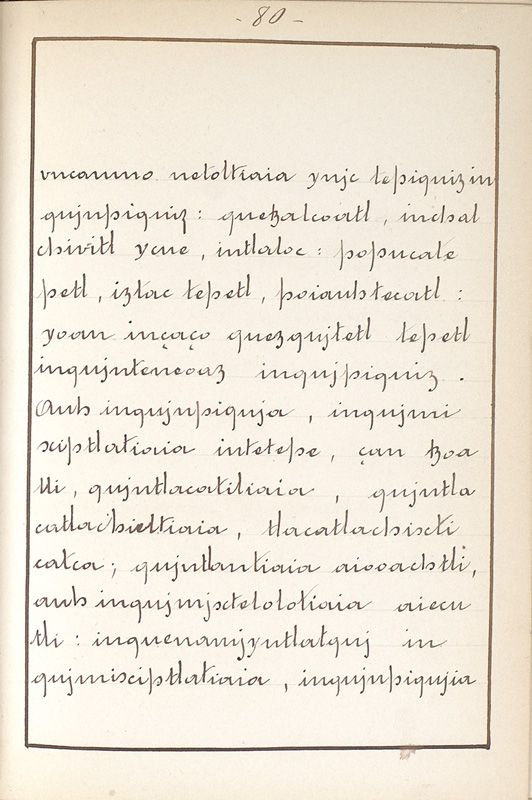 - 80 -
vncanmo netoltiaia ynjc tepiquiz in
qujnpiquiz: quetzalcoatl, inchal
chivitl ycue, intlaloc: popucate
petl, iztac tepetl, poiauhtecatl:
yoan inçaço quezqujtetl tepetl
inqujnteneoaz inqujpiquiz.
Auh inqujnpiquja, inqujmi
xiptlatiaia intetepe, çan tzoa
lli, qujntlacatiliaia, qujntla
catlachieltiaia, tlacatlachixti
catca; qujntlantiaia aiooachtli,
auh inqujmjxtelolotiaia aiecu
tli: inquenamjyntlatquj in
qujmixiptlatiaia, inqujnpiqujia